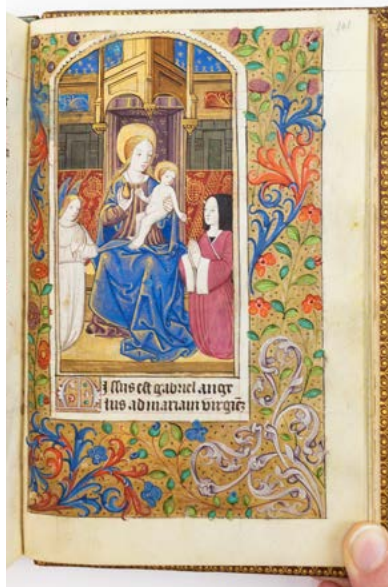 MIssus est gabriel ange
lus ad mariam virginē